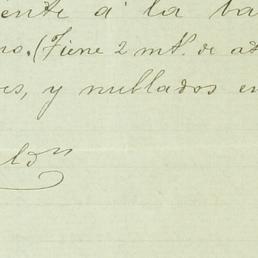 ente á la ba
no. (Tiene 2 mt. de
es, y nublados en